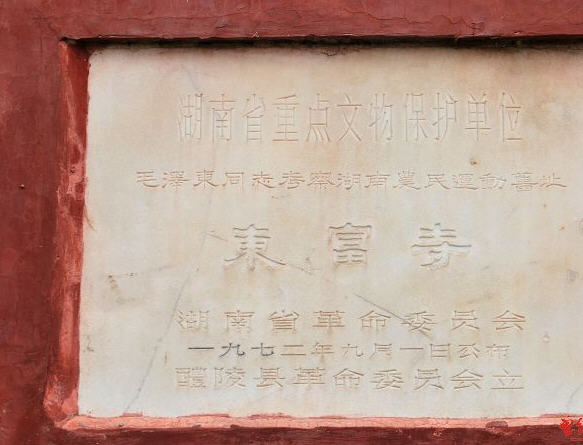 湖南省重点文物保护单位
毛澤東同志考察湖南農民運動舊址
東富寺
湖南省革命委员会
一九七二年九月一日公布
醴陵县革命委员会立